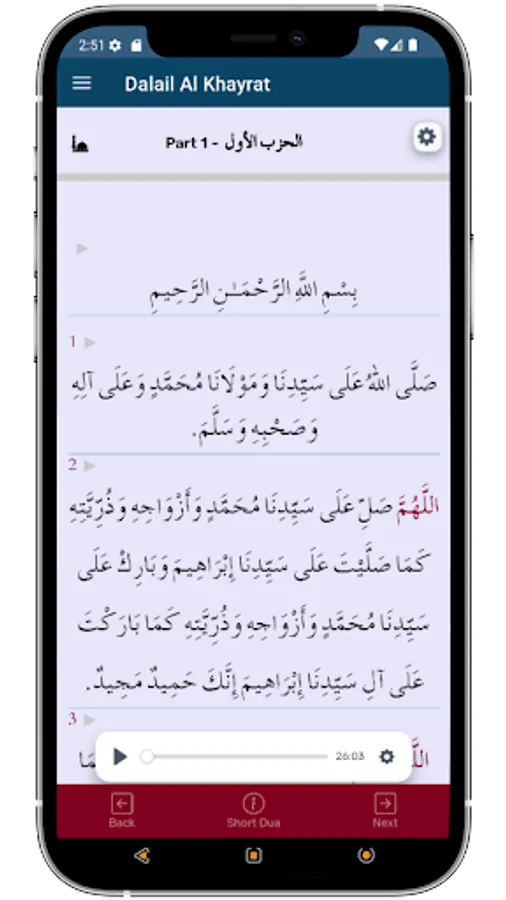 2:51
Dalail Al Khayrat
Part 1 - الحزب الأول
بِسْمِ اللَّهِ الرَّحْمَـٰنِ الرَّحِيمِ
1
صَلَّى اللهُ عَلَى سَيِّدِنَا وَمَوْلَانَا مُحَمَّدٍ وَعَلَى آلِهِ
وَصَحْبِهِ وَسَلَّمَ.
2
اللَّهُمَّ صَلِّ عَلَى سَيِّدِنَا مُحَمَّدٍ وَأَزْوَاجِهِ وَذُرِّيَّتِهِ
كَمَا صَلَّيْتَ عَلَى سَيِّدِنَا إِبْرَاهِيمَ وَبَارِكْ عَلَى
سَيِّدِنَا مُحَمَّدٍ وَأَزْوَاجِهِ وَذُرِّيَّتِهِ كَمَا بَارَكْتَ
عَلَى آلِ سَيِّدِنَا إِبْرَاهِيمَ إِنَّكَ حَمِيدٌ مَجِيدٌ.
3
26:03
Back
Short Dua
Next